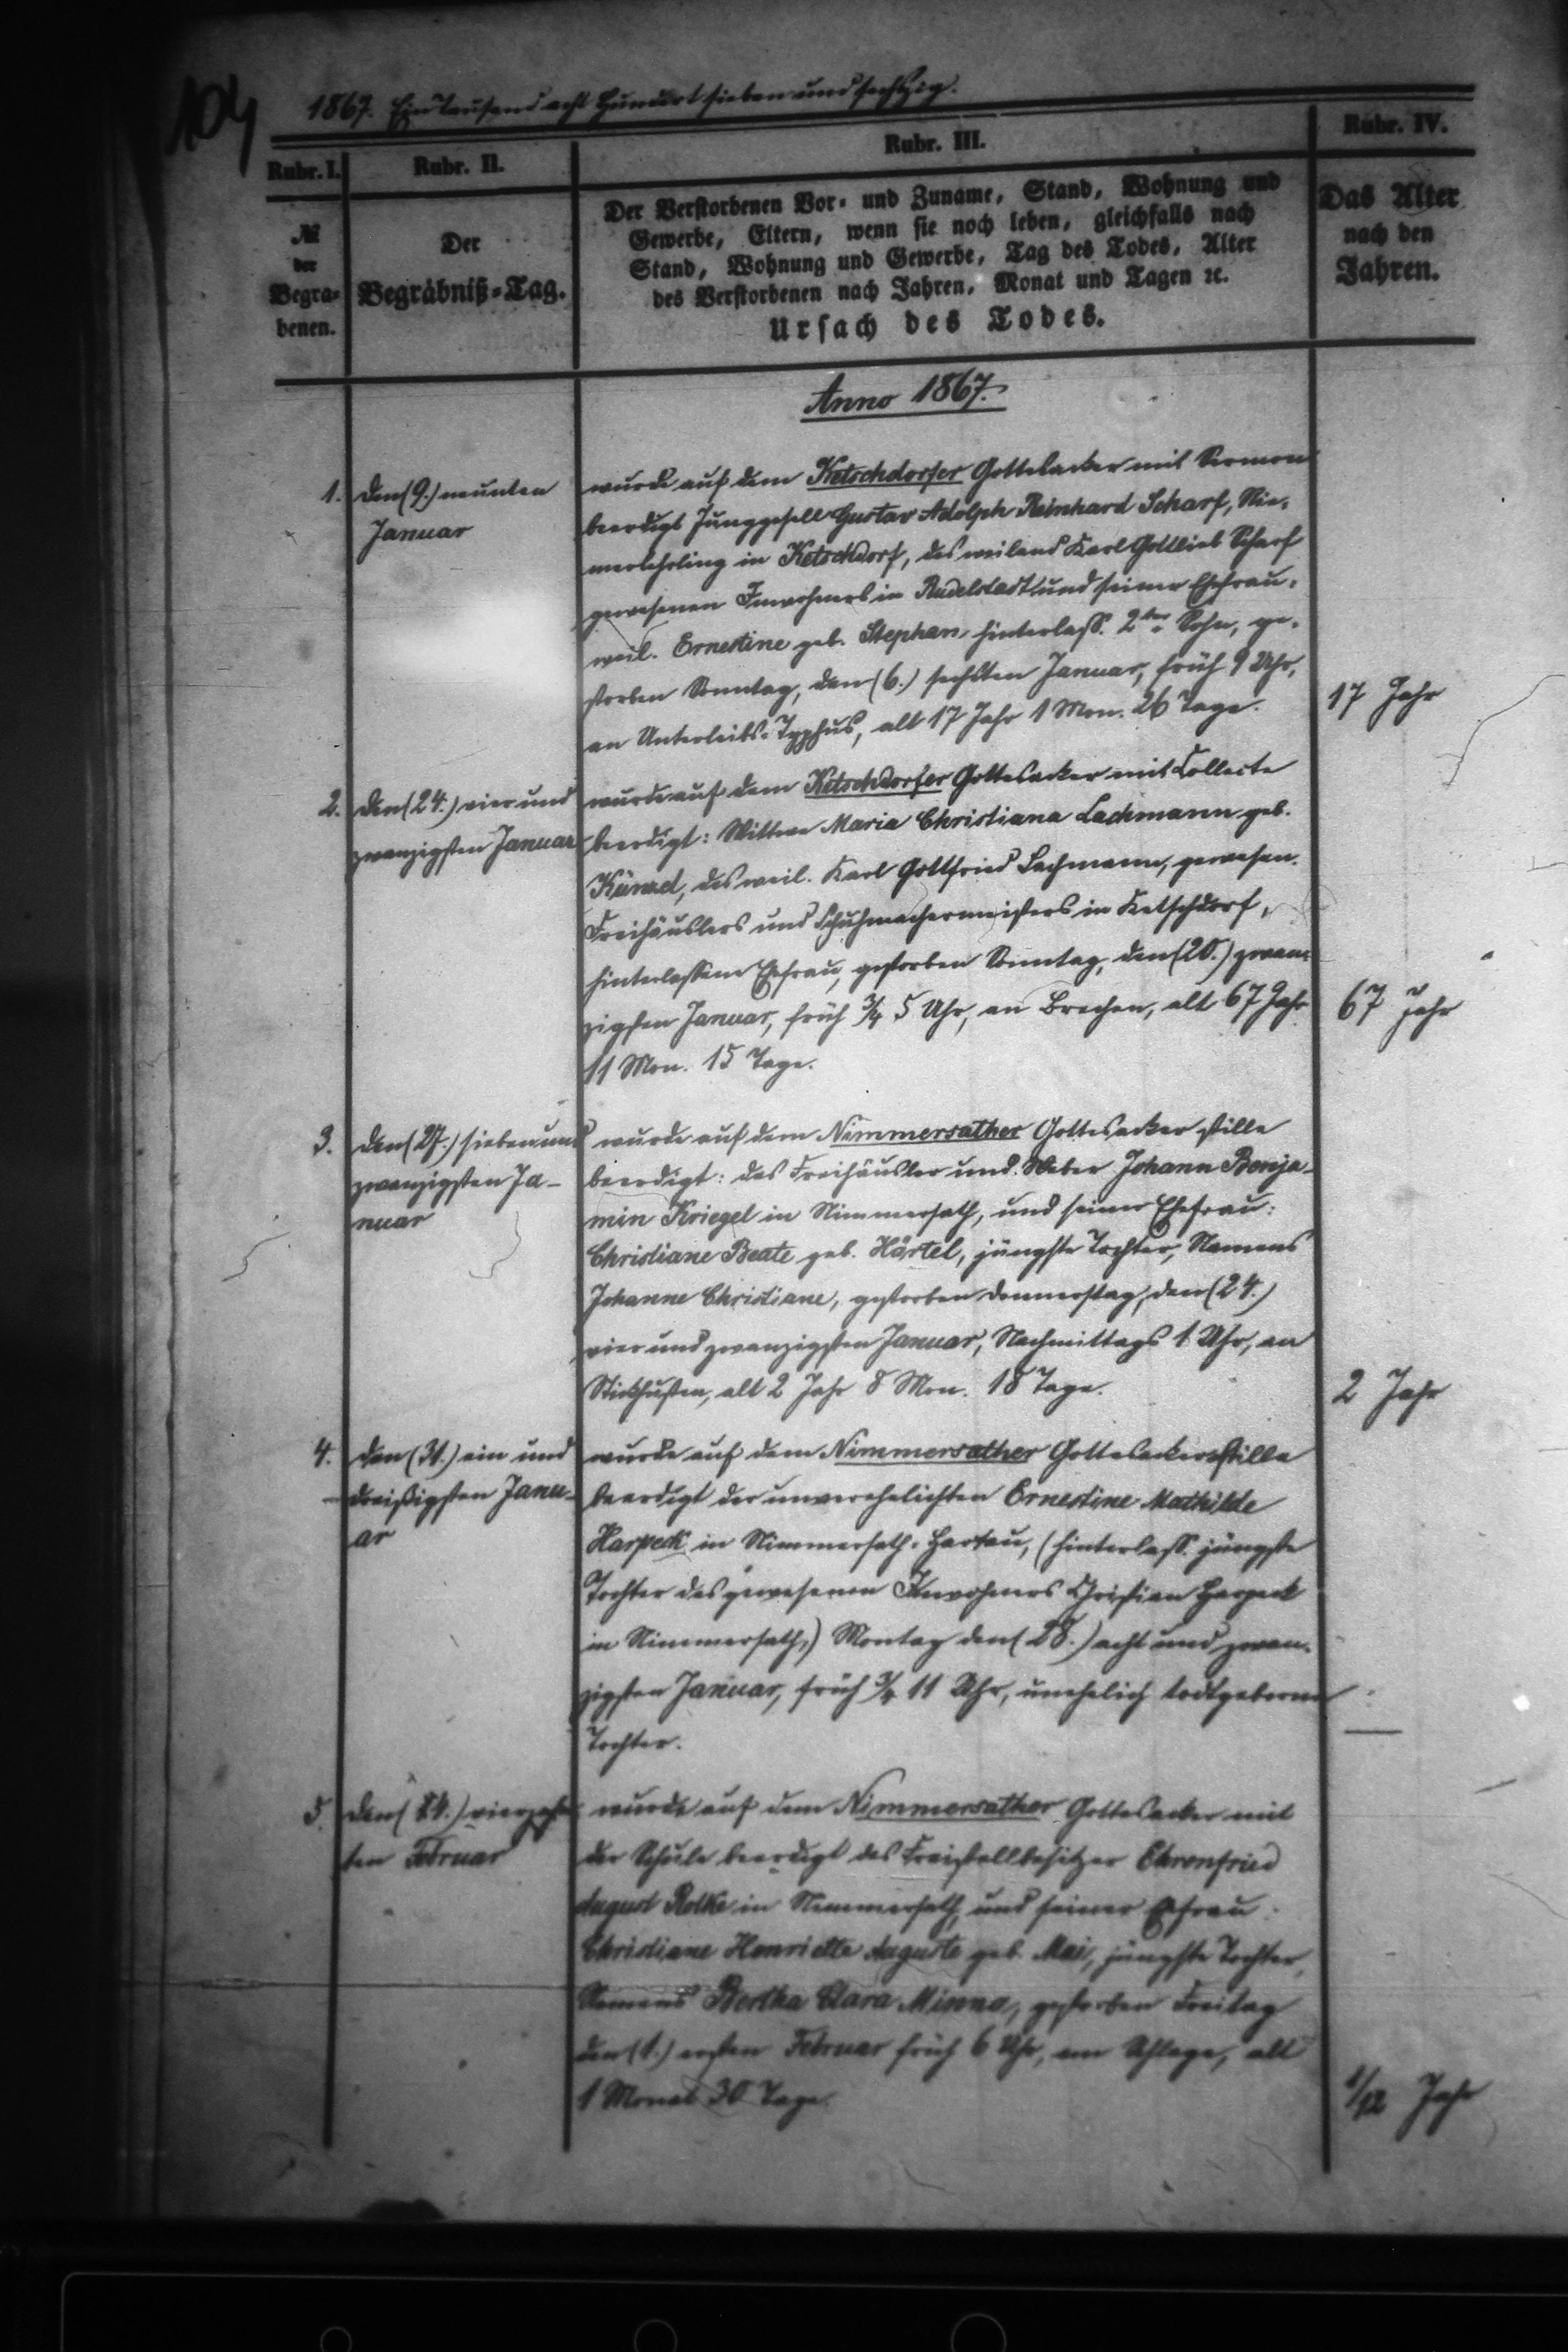 104
1867. Ein Tausend acht Hundert sieben und sechzig.
Rubr. I.
Rubr. II.
Rubr. III.
Rubr. IV.
№
der
Begra-
benen.
Der
Begräbniß-Tag.
Der Verstorbenen Vor- und Zuname, Stand, Wohnung und
Gewerbe, Eltern, wenn sie noch leben, gleichfalls nach
Stand, Wohnung und Gewerbe, Tag des Todes, Alter
des Verstorbenen nach Jahren, Monat und Tagen ꝛc.
Ursach des Todes.
Das Alter
nach den
Jahren.
Anno 1867.
1.
den (9.) neunten
Januar
wurde auf dem Ketschdorfer Gottesacker mit Sermon
beerdigt Junggesell Gustav Adolph Reinhard Scharf, Rie-
merlehrling in Ketschdorf, des weiland Karl Gottlieb Scharf
gewesenen Inwohners in Rudelstadt und seiner Ehefrau,
weil. Ernestine geb. Stephan, hinterlass. 2ter Sohn, ge-
storben Sonntag, den (6.) sechsten Januar, früh 9 Uhr,
an Unterleibs-Typhus, alt 17 Jahr 1 Mon. 26 Tage.
17 Jahr
2.
den (24.) vier und
zwanzigsten Januar
wurde auf dem Ketschdorfer Gottesacker mit Collecte
beerdigt: Wittwe Maria Christiana Lachmann geb.
Künzel, des weil. Karl Gottfried Lachmann, gewesen.
Freihäuslers und Schuhmachermeisters in Ketschdorf,
hinterlassene Ehefrau, gestorben Sonntag, den (20.) zwan-
zigsten Januar, früh 3/4 5 Uhr, an Brechen, alt 67 Jahr
11 Mon. 15 Tage.
67 Jahr
3.
den (27.) sieben und
zwanzigsten Ja-
nuar
wurde auf dem Nimmersather Gottesacker stille
beerdigt: des Freihäusler und Weber Johann Benja-
min Kriegel in Nimmersath, und seiner Ehefrau:
Christiane Beate geb. Härtel, jüngste Tochter, Namens
Johanne Christiane, gestorben Donnerstag, den (24.)
vier und zwanzigsten Januar, Nachmittags 1 Uhr, an
Stickhusten, alt 2 Jahr 8 Mon. 18 Tage.
2 Jahr
4.
den (31.) ein und
dreißigsten Janu-
ar
wurde auf dem Nimmersather Gottesacker stille
beerdigt der unverehelichten Ernestine Mathilde
Harpeck in Nimmersath-Hartau, (hinterlass. jüngste
Tochter des gewesenen Inwohners Christian Harpeck
in Nimmersath,) Montag den (28.) acht und zwan-
zigsten Januar, früh 3/4 11 Uhr, unehelich todtgeborene
Tochter.
—
5.
den (14.) vierzehn-
ten Februar
wurde auf dem Nimmersather Gottesacker mit
der Schule beerdigt des Freistellbesitzer Ehrenfried
August Rolke in Nimmersath, und seiner Ehefrau:
Christiane Henriette Auguste geb. Mai, jüngste Tochter,
Namens Bertha Clara Minna, gestorben Freitag
den (1.) ersten Februar früh 6 Uhr, am Schlage, alt
1 Monat 30 Tage.
1/12 Jahr